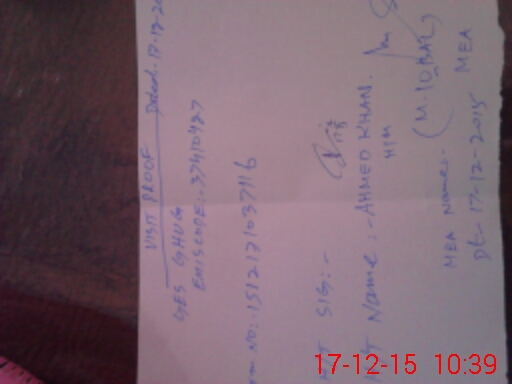 VISIT PROOF Dated:-17-12-20
GES GHUG
EMISCODE:- 37410427
NO:- 1512171037116
SIG:-
Name:- AHMED KHAN.
H/M
MEA Name:- (M. IQBAL)
Dt- 17-12-2015 MEA
17-12-15 10:39